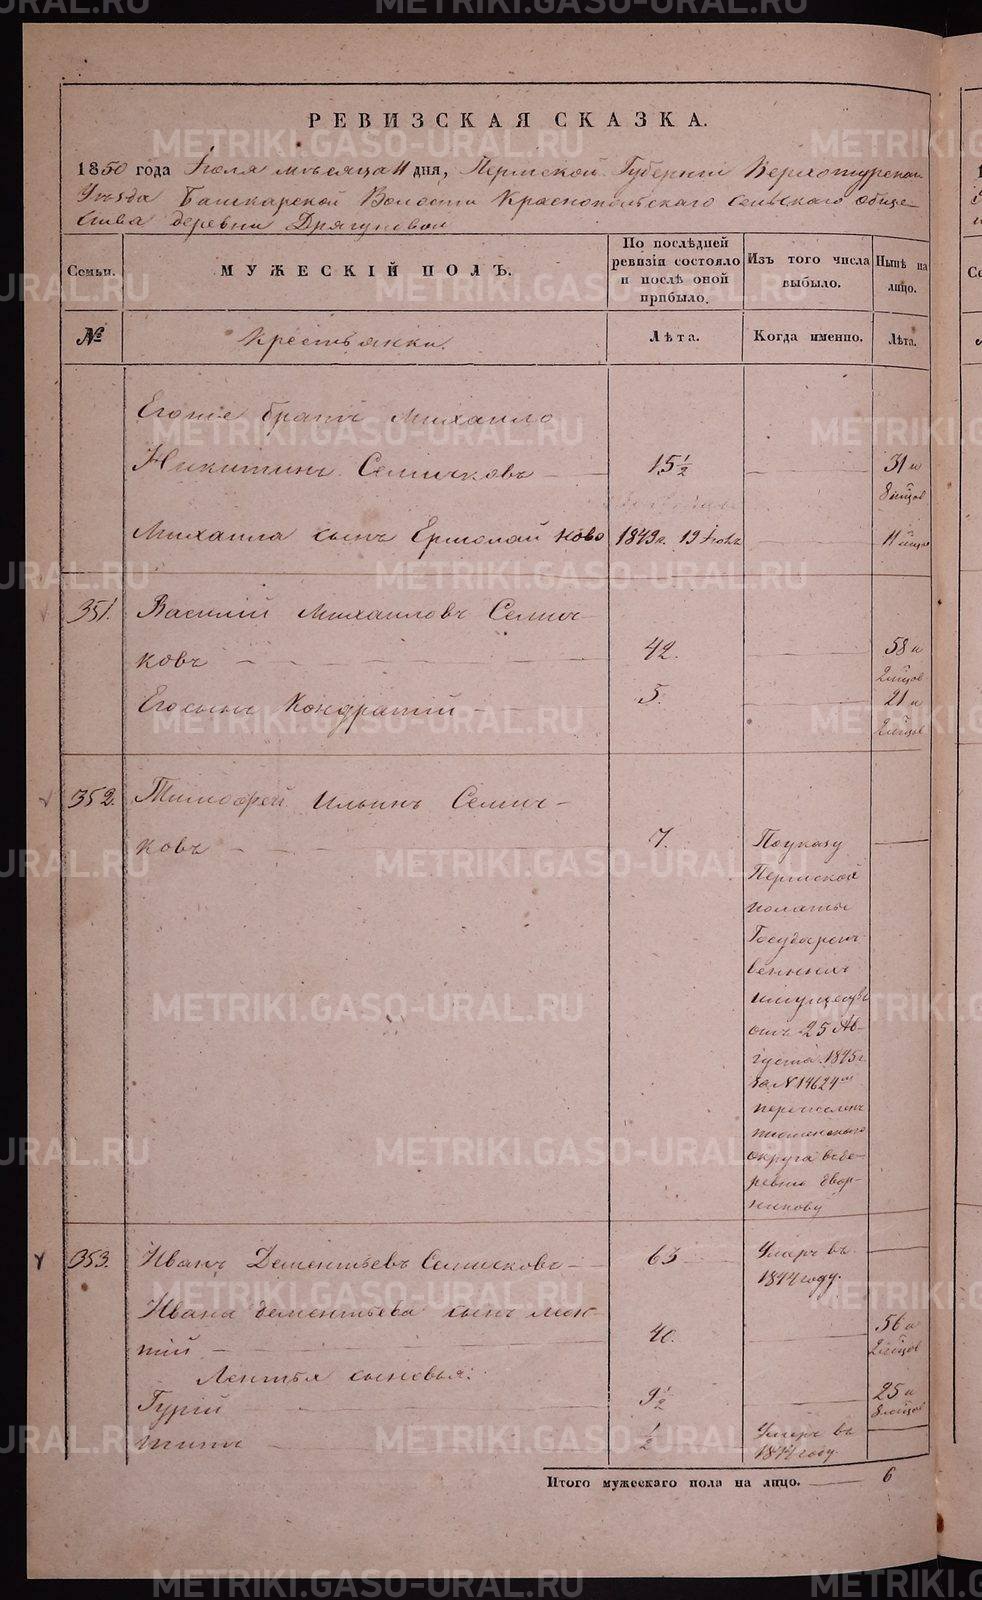 РЕВИЗСКАЯ СКАЗКА.
1850 года Іюля мѣсяца 11 дня, Пермской Губерніи Верхотурскаго
Уѣзда Башкарской Волости Краснопольскаго сельскаго обще-
ства деревни Дрягуновой
Семьи.
МУЖЕСКІЙ ПОЛЪ.
По послѣдней ревизіи состояло и послѣ оной прибыло.
Изъ того числа выбыло.
Нынѣ на лицо.
№
Крестьянки.
Лѣта.
Когда именно.
Лѣта.
Егоже братъ Михаило
Никитинъ Семичковъ 15½ 31 и 8 мѣцов
Михаила сынъ Ермолай ново 1849 г. 19 11 мѣцов
351. Василій Михаиловъ Семич-
ковъ 42. 58 и 2 мѣцов
Его сынъ Кондратій 5. 21 и 2 мѣцов
352. Тимофей Ильинъ Семич-
ковъ 7. По указу
Пермской
полаты
Государст-
венныхъ
имуществъ
отъ 25 Ав-
густа 1845 г
за № 14624
перечисленъ
тюменскаго
округа въ де-
ревню двор-
никову
353. Иванъ Дементьевъ Семичковъ 63 Умеръ въ
1844 году.
Ивана дементьева сынъ леон-
тій 40. 56 и 2 мѣцов
Леонтья сыновья:
Гурій 9½ 25 и 8 мѣцов
титъ ½ Умеръ въ
1844 году
Итого мужескаго пола на лицо. 6
METRIKI.GASO-URAL.RU